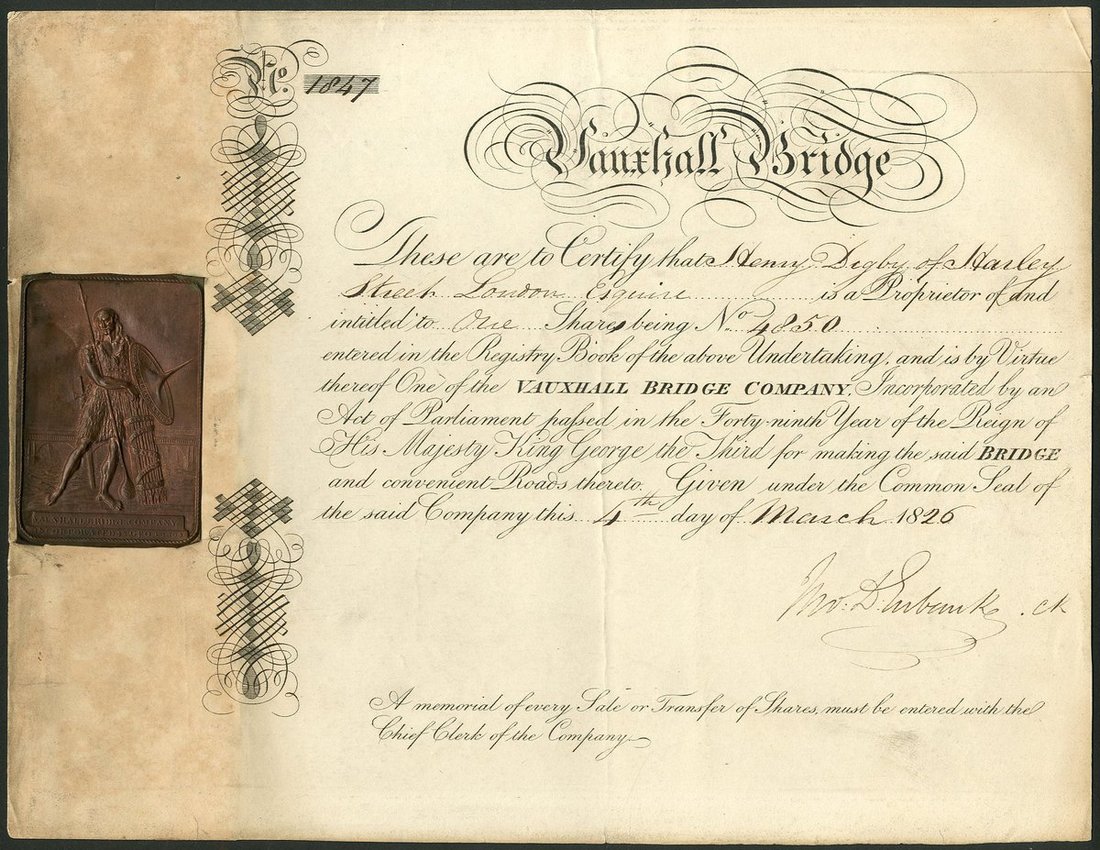 No. 1847
Vauxhall Bridge
These are to Certify that Henry Digby of Harley
Street London Esquire is a Proprietor of and
intitled to One Share being No 4850
entered in the Registry Book of the above Undertaking, and is by Virtue
thereof One of the VAUXHALL BRIDGE COMPANY, Incorporated by an
Act of Parliament passed in the Forty-ninth Year of the Reign of
His Majesty King George the Third for making the said BRIDGE
and convenient Roads thereto. Given under the Common Seal of
the said Company this 4th day of March 1826
Jno. D. Eubank . Ck
A memorial of every Sale or Transfer of Shares, must be entered with the
Chief Clerk of the Company.
VAUXHALL BRIDGE COMPANY